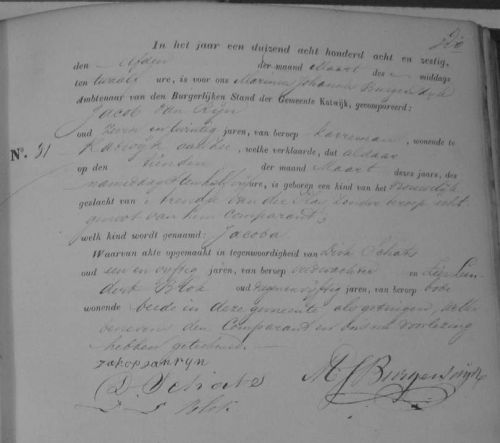 In het jaar een duizend acht honderd acht en zestig,
den Elfden der maand Maart des middags
ten twaalf ure, is voor ons Marinus Johannes Burgersdijk
Ambtenaar van den Burgerlijken Stand der Gemeente Katwijk, gecompareerd:
Jacob van Rijn
oud zeven en twintig jaren, van beroep karreman, wonende te
N°. 31 Katwijk aan Zee, welke verklaarde, dat aldaar
op den tienden der maand Maart dezes jaars, des
namiddags ten half vijf ure, is geboren een kind van het Vrouwelijk
geslacht van zonder beroep echt
genoot van hem Comparant;
welk kind wordt genaamd: Jacoba
Waarvan akte opgemaakt in tegenwoordigheid van Dirk Schats
oud een en vijftig jaren, van beroep veldwachter en
Blok oud negen en vijftig jaren, van beroep bode
wonende beide in deze gemeente als getuigen, die
benevens den Comparant en ons na voorlezing
hebben geteekend.
D. Schats
Blok
MJ Burgersdijk